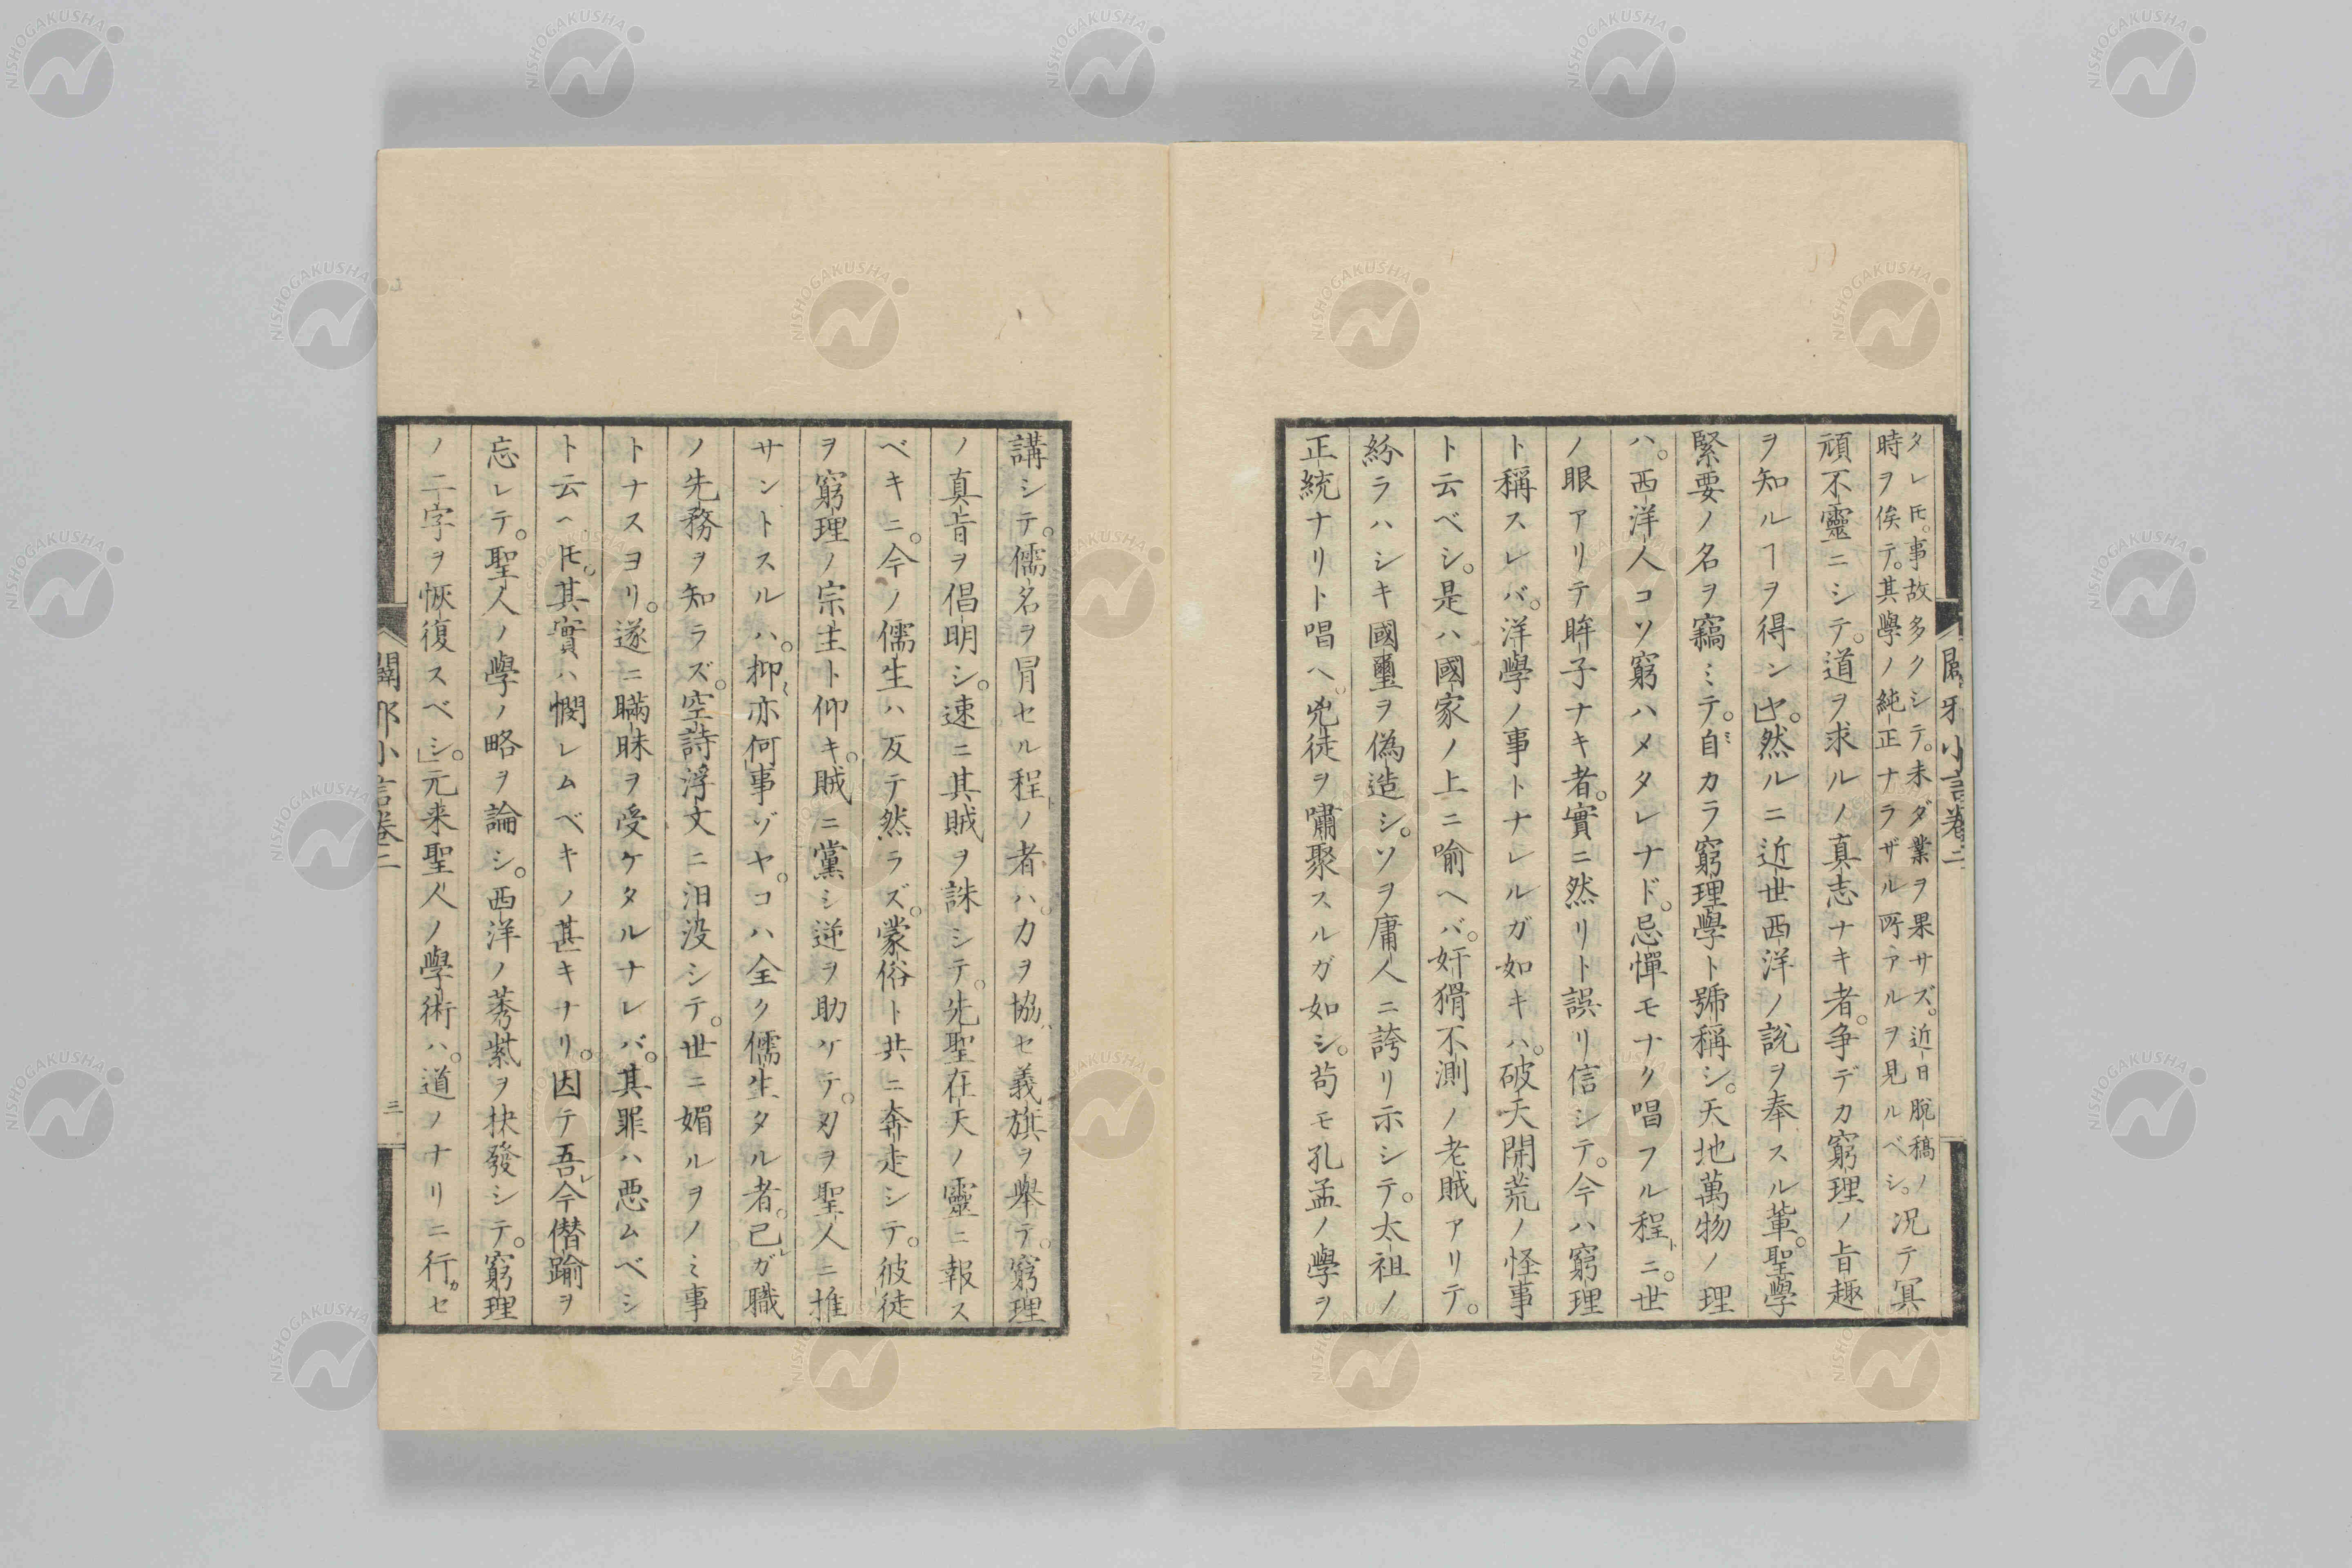 タレ𪜈。事故多クシテ。未ダ業ヲ果サズ。近日脫稿ノ
時ヲ俟テ。其學ノ純正ナラザル所アルヲ見ルベシ。況テ冥
頑不靈ニシテ。道ヲ求ルノ真志ナキ者。争デカ窮理ノ旨趣
ヲ知ルヿヲ得ンヤ。然ルニ近世西洋ノ說ヲ奉スル輩。聖學
緊要ノ名ヲ竊ミテ。自カラ窮理學ト號稱シ。天地萬物ノ理
ハ。西洋人コソ窮ハメタレナド。忌憚モナク唱フル程ニ。世
ノ眼アリテ眸子ナキ者。實ニ然リト誤リ信シテ。今ハ窮理
ト稱スレバ。洋學ノ事トナレルガ如キハ。破天開荒ノ怪事
ト云ベシ。是ハ國家ノ上ニ喻ヘバ。奸猾不測ノ老賊アリテ。
紛ラハシキ國璽ヲ偽造シ。ソヲ庸人ニ誇リ示シテ。太祖ノ
正統ナリト唱ヘ。兇徒ヲ嘯聚スルガ如シ。苟モ孔孟ノ學ヲ
講シテ。儒名ヲ冒セル程ノ者ハ。力ヲ協セ義旗ヲ舉テ。窮理
ノ真旨ヲ倡明シ。速ニ其賊ヲ誅シテ。先聖在天ノ靈ニ報ス
ベキニ。今ノ儒生ハ反テ然ラズ。蒙俗ト共ニ奔走シテ。彼徒
ヲ窮理ノ宗主ト仰キ。賊ニ黨シ逆ヲ助ケテ。刃ヲ聖人ニ推
サントスルハ。抑亦何事ゾヤ。コハ全ク儒生タル者。己ガ職
ノ先務ヲ知ラズ。空詩浮文ニ汨没シテ。世ニ媚ルヲノミ事
トナスヨリ。遂ニ瞞昧ヲ受ケタルナレバ。其罪ハ悪ムベシ
ト云ヘ𪜈。其實ハ憫レムベキノ甚キナリ。因テ吾今僣踰ヲ
忘レテ。聖人ノ學ノ略ヲ論シ。西洋ノ莠紫ヲ抉發シテ。窮理
ノ二字ヲ恢復スベシ。元来聖人ノ學術ハ。道ノナリニ行セ
闢邪小言卷二
三